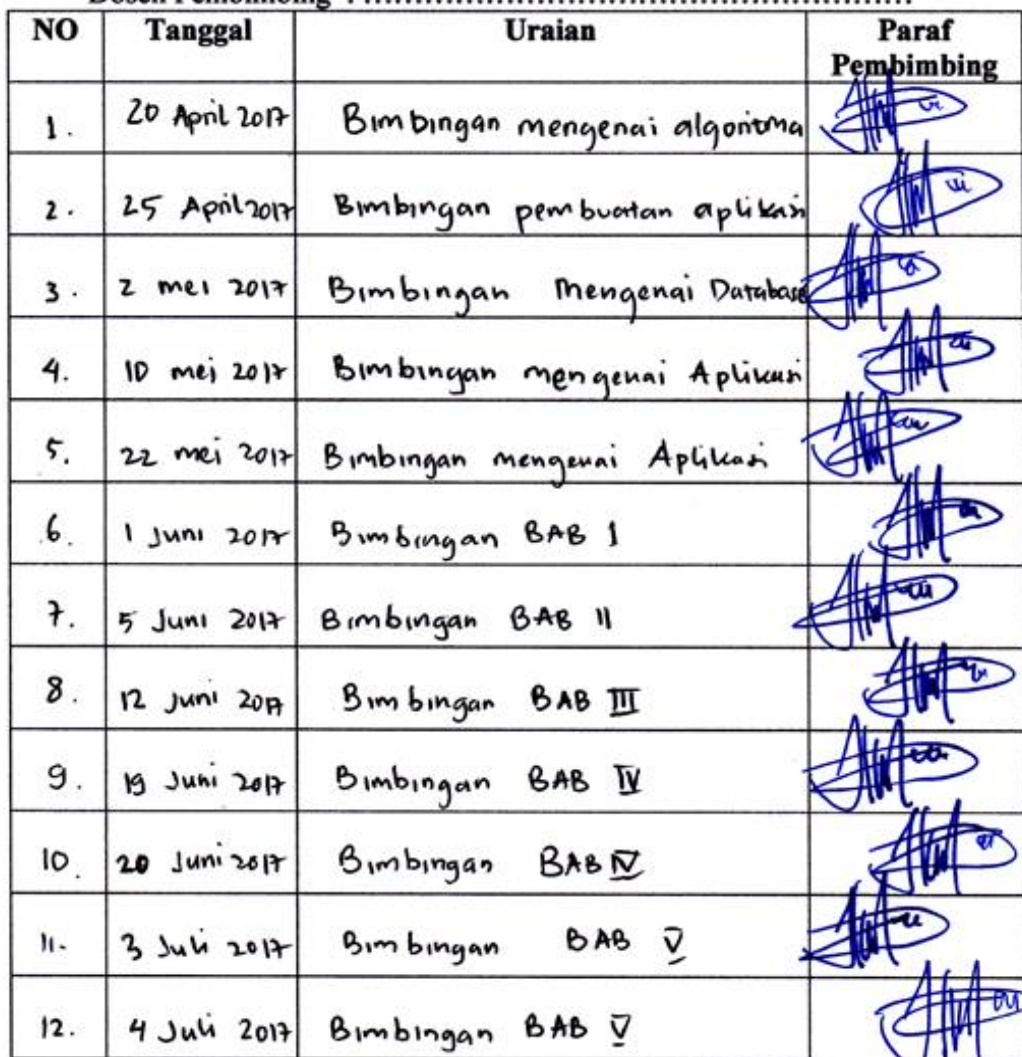 Dosen Pembimbing : ............................................................
NO Tanggal Uraian Paraf Pembimbing
1. 20 April 2017 Bimbingan mengenai algoritma
2. 25 April 2017 Bimbingan pembuatan aplikasi
3. 2 mei 2017 Bimbingan Mengenai Database
4. 10 mei 2017 Bimbingan mengenai Aplikasi
5. 22 mei 2017 Bimbingan mengenai Aplikasi
6. 1 Juni 2017 Bimbingan BAB I
7. 5 Juni 2017 Bimbingan BAB II
8. 12 Juni 2017 Bimbingan BAB III
9. 19 Juni 2017 Bimbingan BAB IV
10. 20 Juni 2017 Bimbingan BAB IV
11. 3 Juli 2017 Bimbingan BAB V
12. 4 Juli 2017 Bimbingan BAB V